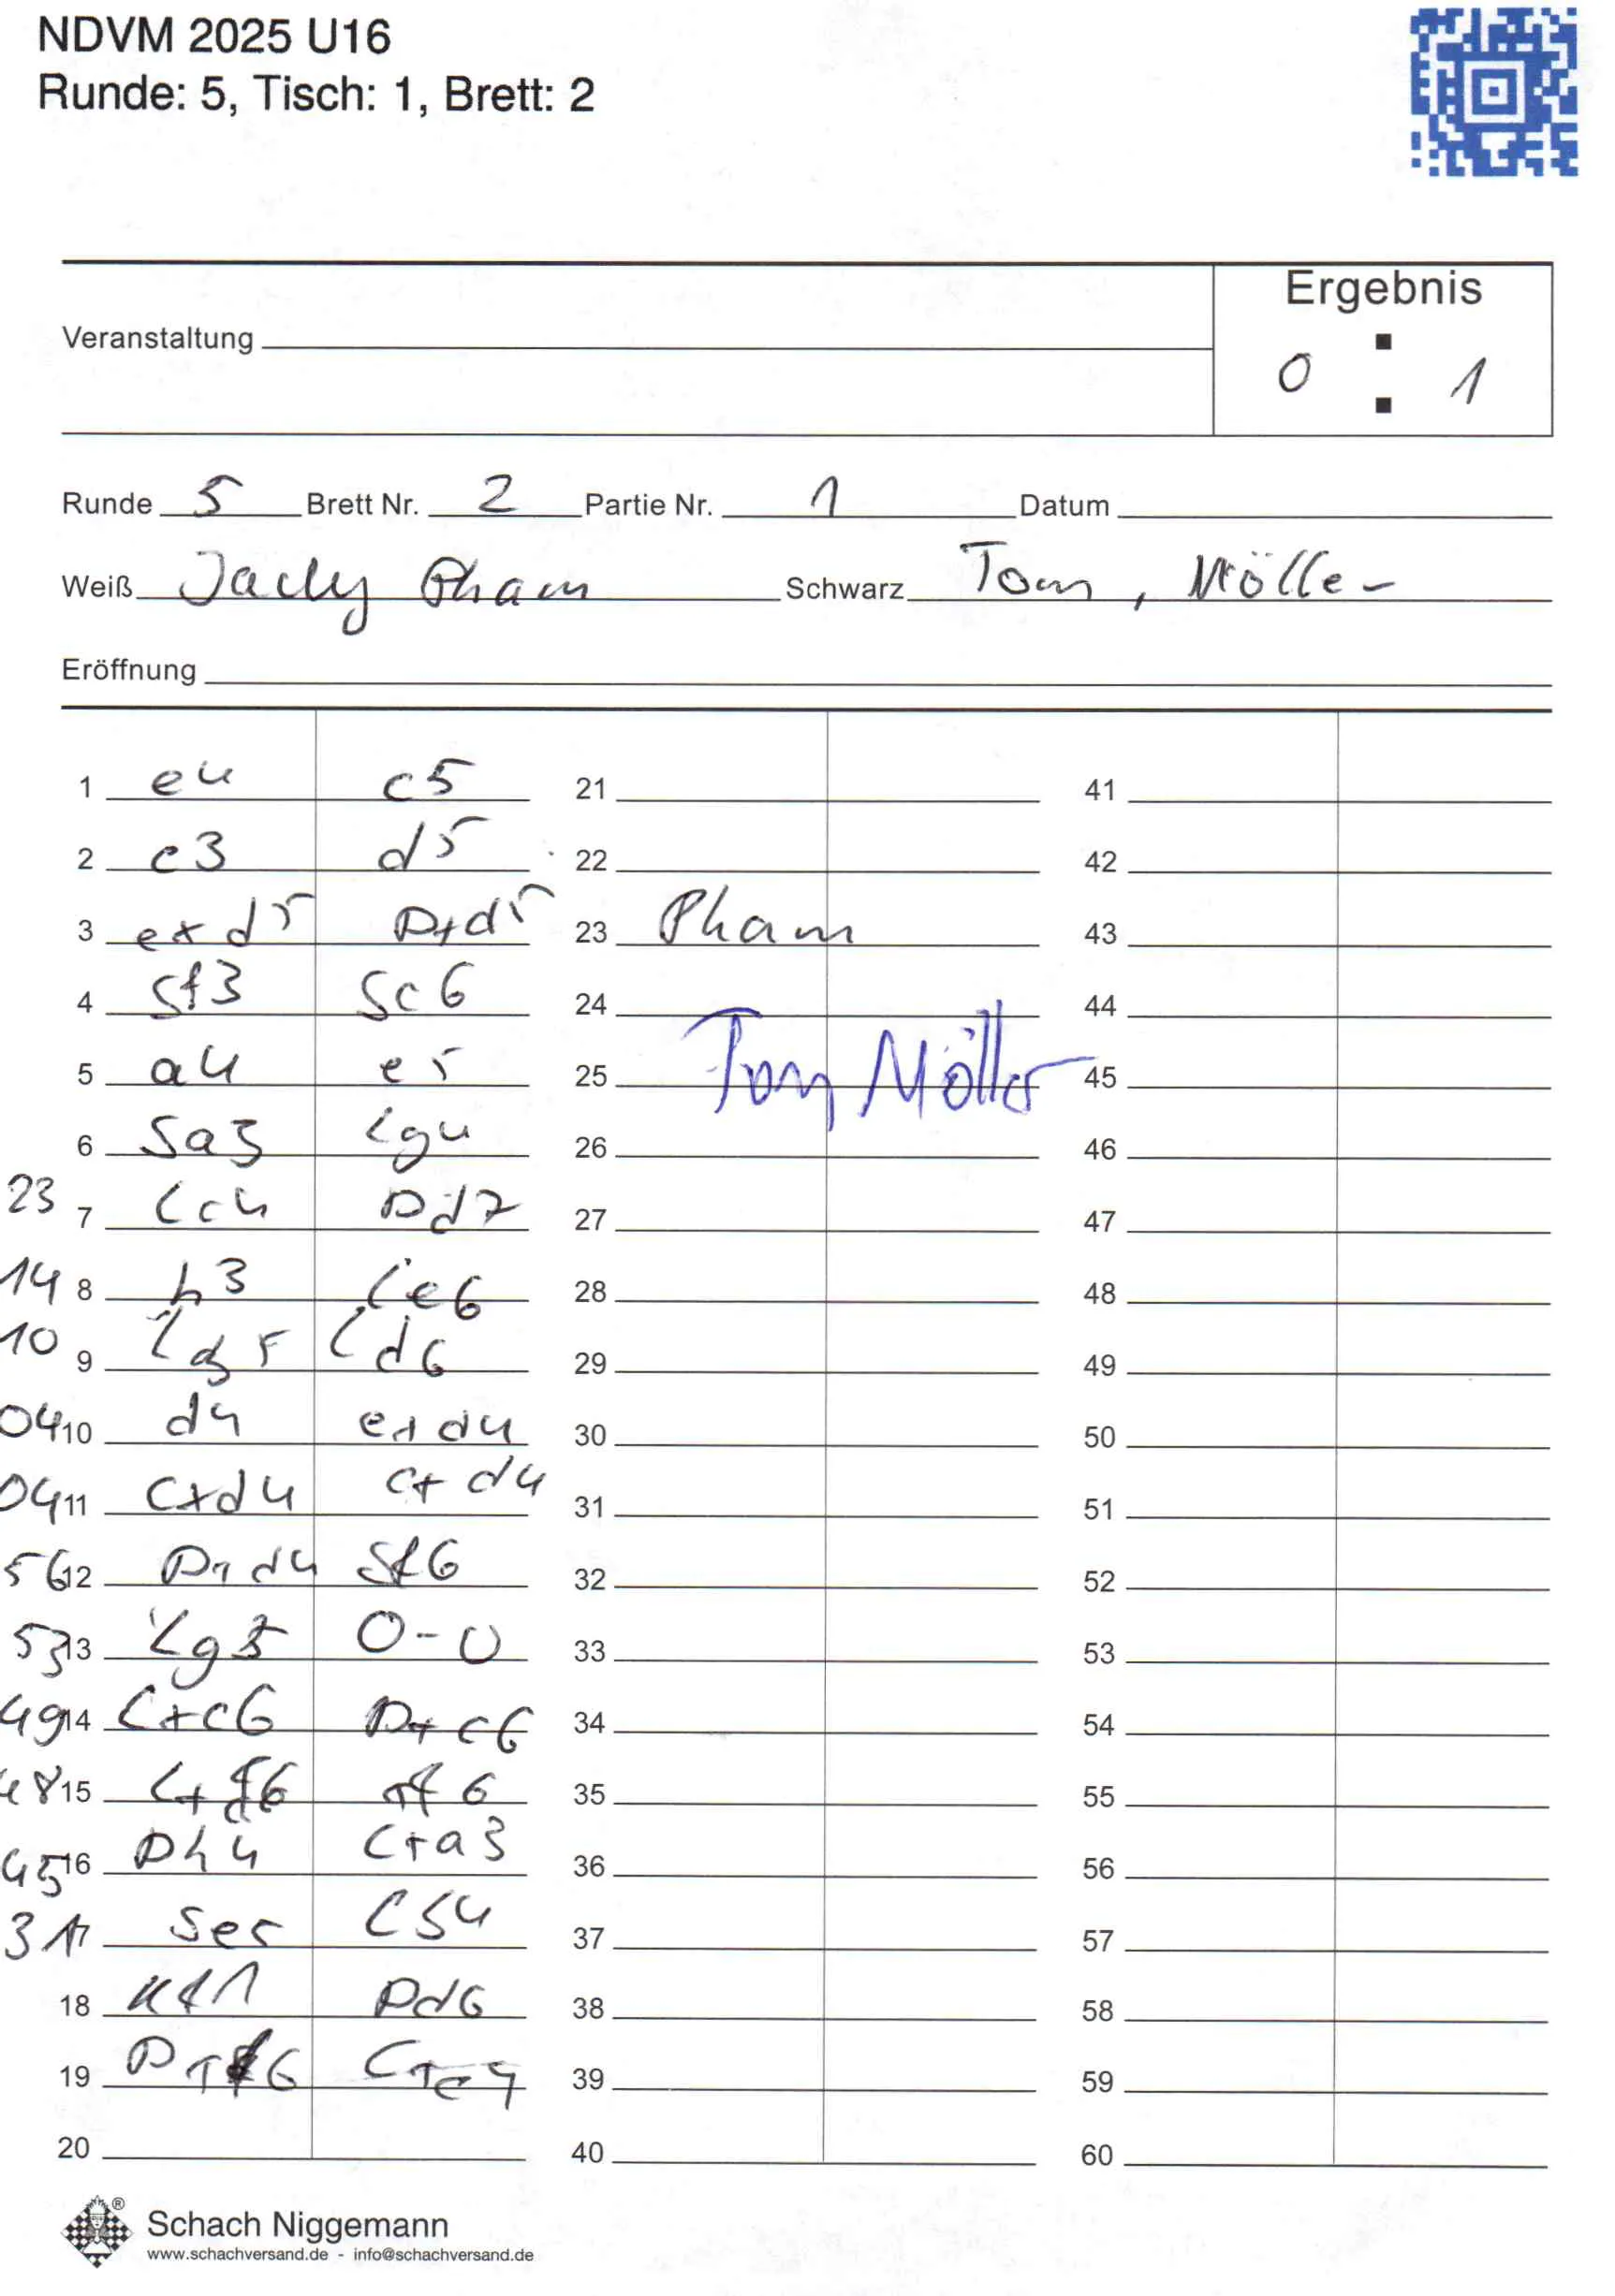 NDVM 2025 U16
Runde: 5, Tisch: 1, Brett: 2
Ergebnis
Veranstaltung
0 : 1
Runde 5 Brett Nr. 2 Partie Nr. 1 Datum
Weiß Jacky Pham Schwarz Tom, Möller
Eröffnung
1 e4 c5 21 41
2 c3 d5 22 42
3 exd5 Dxd5 23 Pham 43
4 Sf3 Sc6 24 44
5 a4 e5 25 Tom Möller 45
6 Sa3 Lg4 26 46
23 7 Lc4 Dd7 27 47
14 8 h3 Le6 28 48
10 9 Lg5 Ld6 29 49
04 10 d4 exd4 30 50
04 11 cxd4 cxd4 31 51
56 12 Dxd4 Sf6 32 52
53 13 Lg5 0-0 33 53
49 14 Lxc6 Dxc6 34 54
48 15 Lxf6 gf6 35 55
45 16 Dh4 Lxa3 36 56
31 17 Se5 Lb4 37 57
18 Kf1 Dd6 38 58
19 Dxf6 Lxc4 39 59
20 40 60
® Schach Niggemann
www.schachversand.de - info@schachversand.de